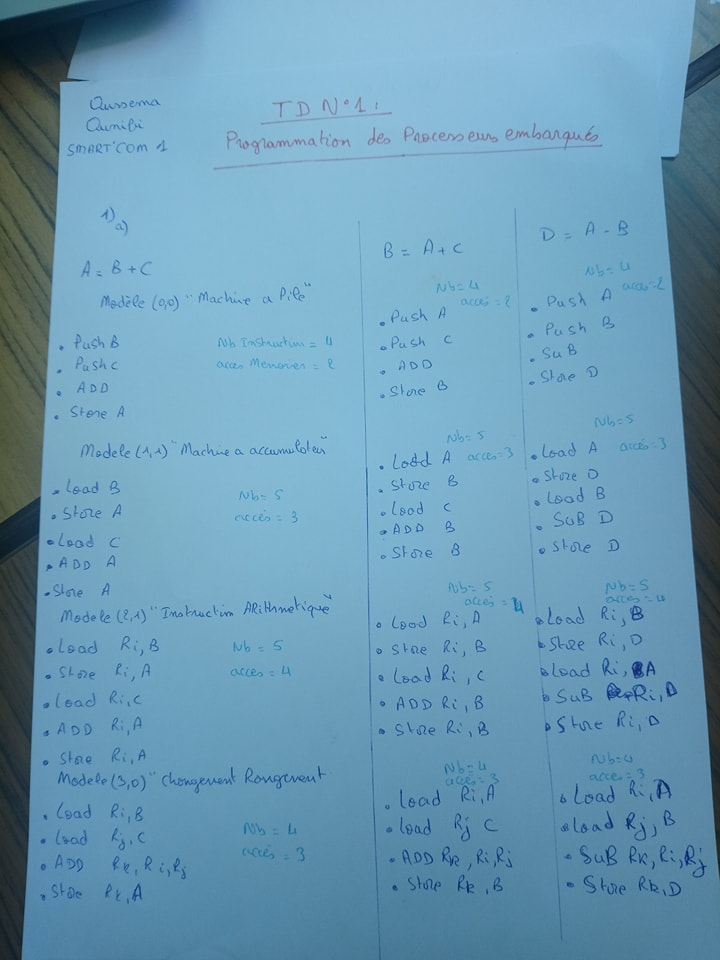 Oussema
Ounifi
SMART'COM 1
TD N°1:
Programmation des Processeurs embarqués
1)
a)
A = B + C
Modèle (0,0) "Machine a Pile"
• Push B
• Push C
• ADD
• Store A
Nb Instruction = 4
acces Memoire = 2
Modele (1,1) "Machine a accumulateur"
• Load B
• Store A
• Load C
• ADD A
• Store A
Nb = 5
accés = 3
Modele (2,1) "Instruction ARithmetique"
• Load Ri,B
• Store Ri,A
• Load Ri,C
• ADD Ri,A
• Store Ri,A
Nb = 5
accés = 4
Modele (3,0) "Changement Rangement"
• Load Ri,B
• Load Rj,C
• ADD Rk, Ri,Rj
• Store Rk,A
Nb = 4
accés = 3
B = A + C
Nb = 4
accés = 2
• Push A
• Push C
• ADD
• Store B
Nb = 5
accés = 3
• Load A
• Store B
• Load C
• ADD B
• Store B
Nb = 5
accés = 4
• Load Ri,A
• Store Ri,B
• Load Ri,C
• ADD Ri,B
• Store Ri,B
Nb = 4
accés = 3
• Load Ri,A
• Load Rj C
• ADD Rk, Ri,Rj
• Store Rk,B
D = A - B
Nb = 4
accés = 2
• Push A
• Push B
• SuB
• Store D
Nb = 5
accés = 3
• Load A
• Store D
• Load B
• SuB D
• Store D
Nb = 5
accés = 4
• Load Ri,B
• Store Ri,D
• Load Ri,A
• SuB Ri,D
• Store Ri,D
Nb = 4
accés = 3
• Load Ri,A
• Load Rj,B
• SuB Rk,Ri,Rj
• Store Rk,D